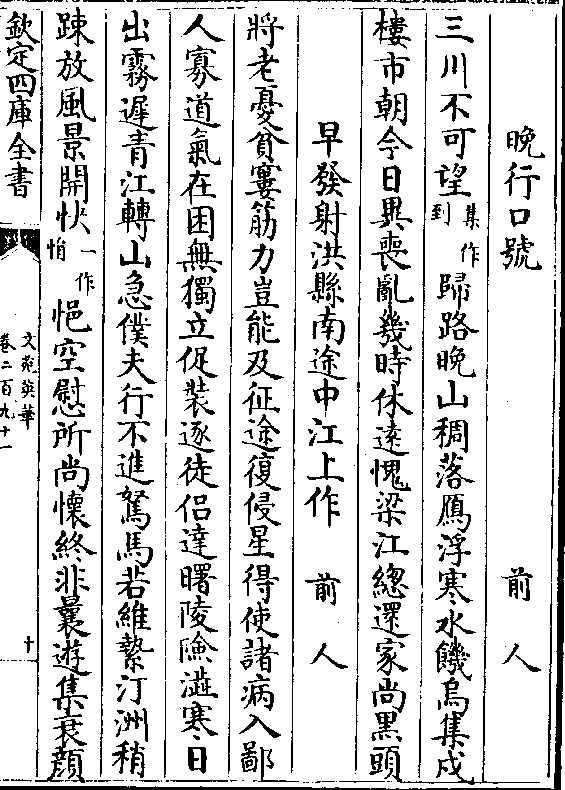 晩行口號　前人
三川不可望集作到歸路晩山稠落鴈浮寒水饑烏集戍
樓市朝今日異喪亂幾時休遠愧梁江總還家尚黒頭
早發射洪縣南途中江上作　前人
將老憂貧窶筋力豈能及征途復侵星得使諸病入鄙
人寡道氣在困無獨立促裝逐徒侣達曙陵險澁寒日
出霧遲青江轉山急僕夫行不進駑馬若維縶汀洲稍
踈放風景開快一作悄悒空慰所尚懷終非曩遊集衰顔
欽定四庫全書
文苑英華
卷二百九十一
十